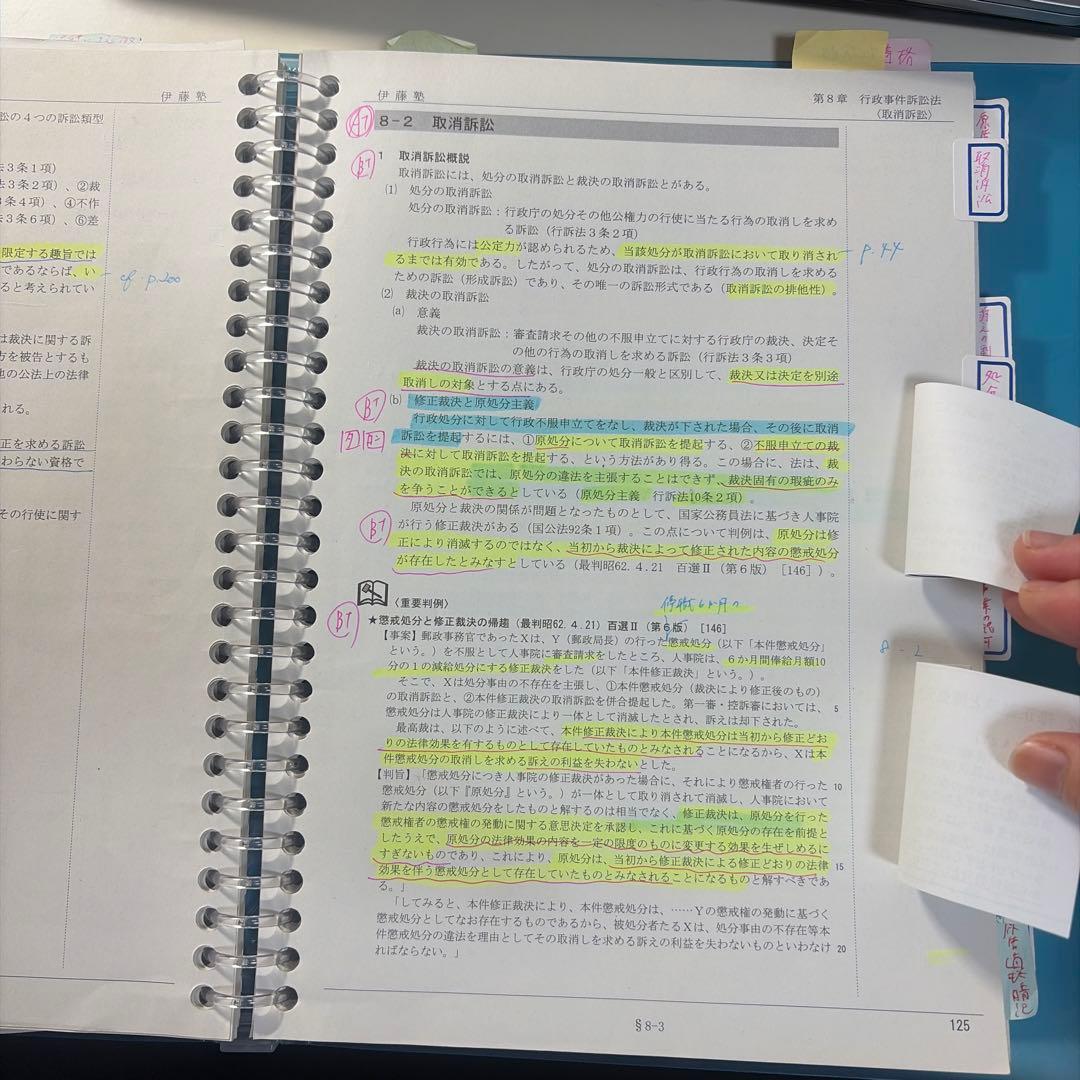 伊藤塾
訟の４つの訴訟類型
法３条１項）
法３条２項）、②裁
３条４項）、④不作
３条６項）、⑥差
限定する趣旨では
であるならば、い
ると考えられてい
cf. p.200
は裁決に関する訴
方を被告とするも
他の公法上の法律
れる。
正を求める訴訟
わらない資格で
その行使に関す
伊藤塾
第８章　行政事件訴訟法
〈取消訴訟〉
A↑
8-2　取消訴訟
B↑
1　取消訴訟概説
取消訴訟には、処分の取消訴訟と裁決の取消訴訟とがある。
(1)　処分の取消訴訟
処分の取消訴訟：行政庁の処分その他公権力の行使に当たる行為の取消しを求め
る訴訟（行訴法３条２項）
行政行為には公定力が認められるため、当該処分が取消訴訟において取り消され
るまでは有効である。したがって、処分の取消訴訟は、行政行為の取消しを求める
ための訴訟（形成訴訟）であり、その唯一の訴訟形式である（取消訴訟の排他性）。
p.44
(2)　裁決の取消訴訟
(a)　意義
裁決の取消訴訟：審査請求その他の不服申立てに対する行政庁の裁決、決定そ
の他の行為の取消しを求める訴訟（行訴法３条３項）
裁決の取消訴訟の意義は、行政庁の処分一般と区別して、裁決又は決定を別途
取消しの対象とする点にある。
B↑
(b)　修正裁決と原処分主義
行政処分に対して行政不服申立てをなし、裁決が下された場合、その後に取消
訴訟を提起するには、①原処分について取消訴訟を提起する、②不服申立ての裁
決に対して取消訴訟を提起する、という方法があり得る。この場合に、法は、裁
決の取消訴訟では、原処分の違法を主張することはできず、裁決固有の瑕疵のみ
を争うことができるとしている（原処分主義　行訴法10条２項）。
原処分と裁決の関係が問題となったものとして、国家公務員法に基づき人事院
が行う修正裁決がある（国公法92条１項）。この点について判例は、原処分は修
正により消滅するのではなく、当初から裁決によって修正された内容の懲戒処分
が存在したとみなすとしている（最判昭62.4.21　百選Ⅱ（第６版）［146］）。
B↑
〈重要判例〉
停職6か月の
B↑
★懲戒処分と修正裁決の帰趨（最判昭62.4.21）百選Ⅱ（第６版）［146］
【事案】郵政事務官であったＸは、Ｙ（郵政局長）の行った懲戒処分（以下「本件懲戒処分」
という。）を不服として人事院に審査請求をしたところ、人事院は、６か月間俸給月額10
分の１の減給処分にする修正裁決をした（以下「本件修正裁決」という。）。
そこで、Ｘは処分事由の不存在を主張し、①本件懲戒処分（裁決により修正後のもの）
の取消訴訟と、②本件修正裁決の取消訴訟を併合提起した。第一審・控訴審においては、 5
懲戒処分は人事院の修正裁決により一体として消滅したとされ、訴えは却下された。
最高裁は、以下のように述べて、本件修正裁決により本件懲戒処分は当初から修正どお
りの法律効果を有するものとして存在していたものとみなされることになるから、Ｘは本
件懲戒処分の取消しを求める訴えの利益を失わないとした。
【判旨】「懲戒処分につき人事院の修正裁決があった場合に、それにより懲戒権者の行った 10
懲戒処分（以下『原処分』という。）が一体として取り消されて消滅し、人事院において
新たな内容の懲戒処分をしたものと解するのは相当でなく、修正裁決は、原処分を行った
懲戒権者の懲戒権の発動に関する意思決定を承認し、これに基づく原処分の存在を前提と
したうえで、原処分の法律効果の内容を一定の限度のものに変更する効果を生ぜしめるに
すぎないものであり、これにより、原処分は、当初から修正裁決による修正どおりの法律 15
効果を伴う懲戒処分として存在していたものとみなされることになるものと解すべきであ
る。」
「してみると、本件修正裁決により、本件懲戒処分は、……Ｙの懲戒権の発動に基づく
懲戒処分としてなお存在するものであるから、被処分者たるＸは、処分事由の不存在等本
件懲戒処分の違法を理由としてその取消しを求める訴えの利益を失わないものといわなけ 20
ればならない。」
§8-3
125
取消訴訟
8-2